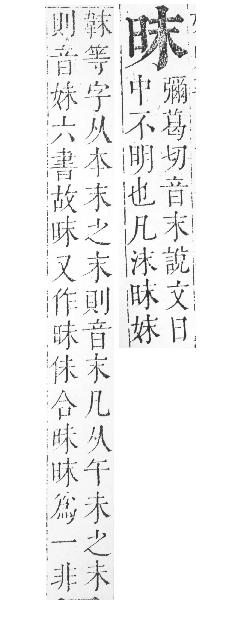 昩
彌葛切音末說文日
中不明也凡沫昩妺
韎等字从本末之末則音末凡从午未之未
則音妹六書故昩又作昧佅合昧昩爲一非